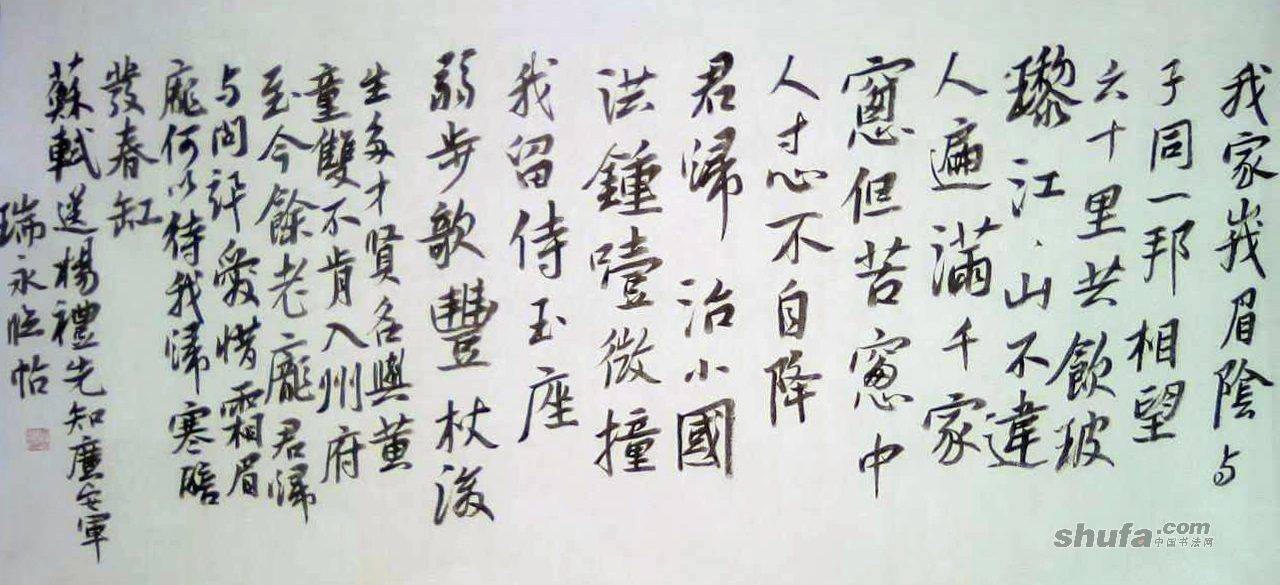 我家峩眉陰与
子同一邦相望
六十里共飲玻
瓈江、山不違
人遍滿千家
窻但苦窻中
人寸心不自降
君歸治小國
洪鍾噎微撞
我留侍玉座
弱步歌豐杖後
生多才賢名與黄
童雙不肯入州府
至今餘老龐君歸
与問訊愛惜霜眉
龐何以待我歸寒醅
發春缸
蘇軾送楊禮先知廣安軍
瑞永臨帖
shufa.com
中国书法网